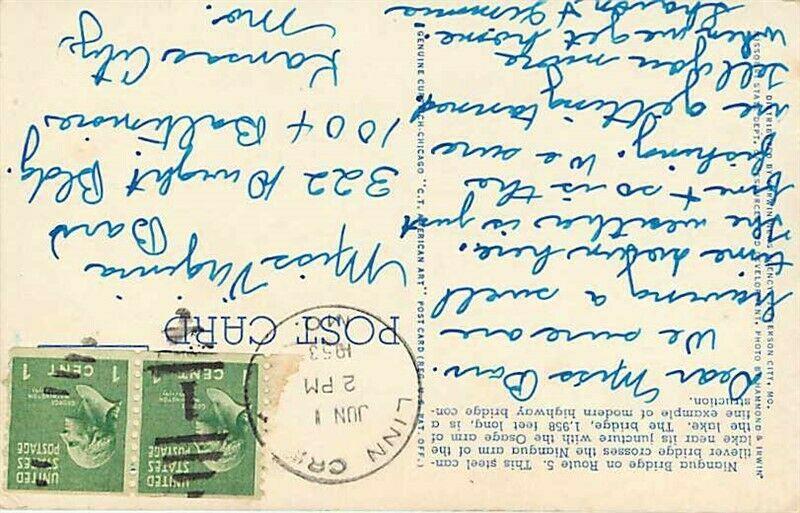 Niangua Bridge on Route 5. This steel can-
tilever bridge crosses the Niangua arm of the
lake near its juncture with the Osage arm of
the lake. The bridge, 1,958 feet long, is a
fine example of modern highway bridge con-
struction.
Dear Miss Barr.
We sure are
having a swell
time down here.
The weather is just
fine & so is the
fishing. We sure
are getting tanned
tell you more
when we get home
Sharon & Jimmie
GENUINE CURTEICH-CHICAGO "C.T. AMERICAN ART" POST CARD (REG. U.S. PAT. OFF.)
DISTRIBUTED BY
JEFFERSON CITY, MO.
MISSOURI STATE DEPT. RESOURCES AND DEVELOPMENT. PHOTO BY HAMMOND & IRWIN
POST CARD
LINN CREEK
JUN 1
2 PM
1953
MO.
UNITED
STATES
POSTAGE
GEORGE
WASHINGTON
1 CENT 1
UNITED
STATES
POSTAGE
1 CENT 1
Miss Virginia
Barr
322 Dwight Bldg.
1004 Baltimore
Kansas City,
Mo.